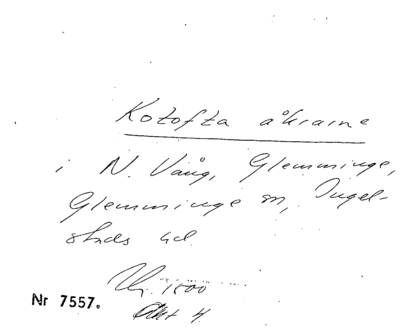 Kotofta åkraine
i N. Vång, Glemminge,
Glemminge sn, Ingel-
stads hd.
1500
Nr 7557. Akt 4